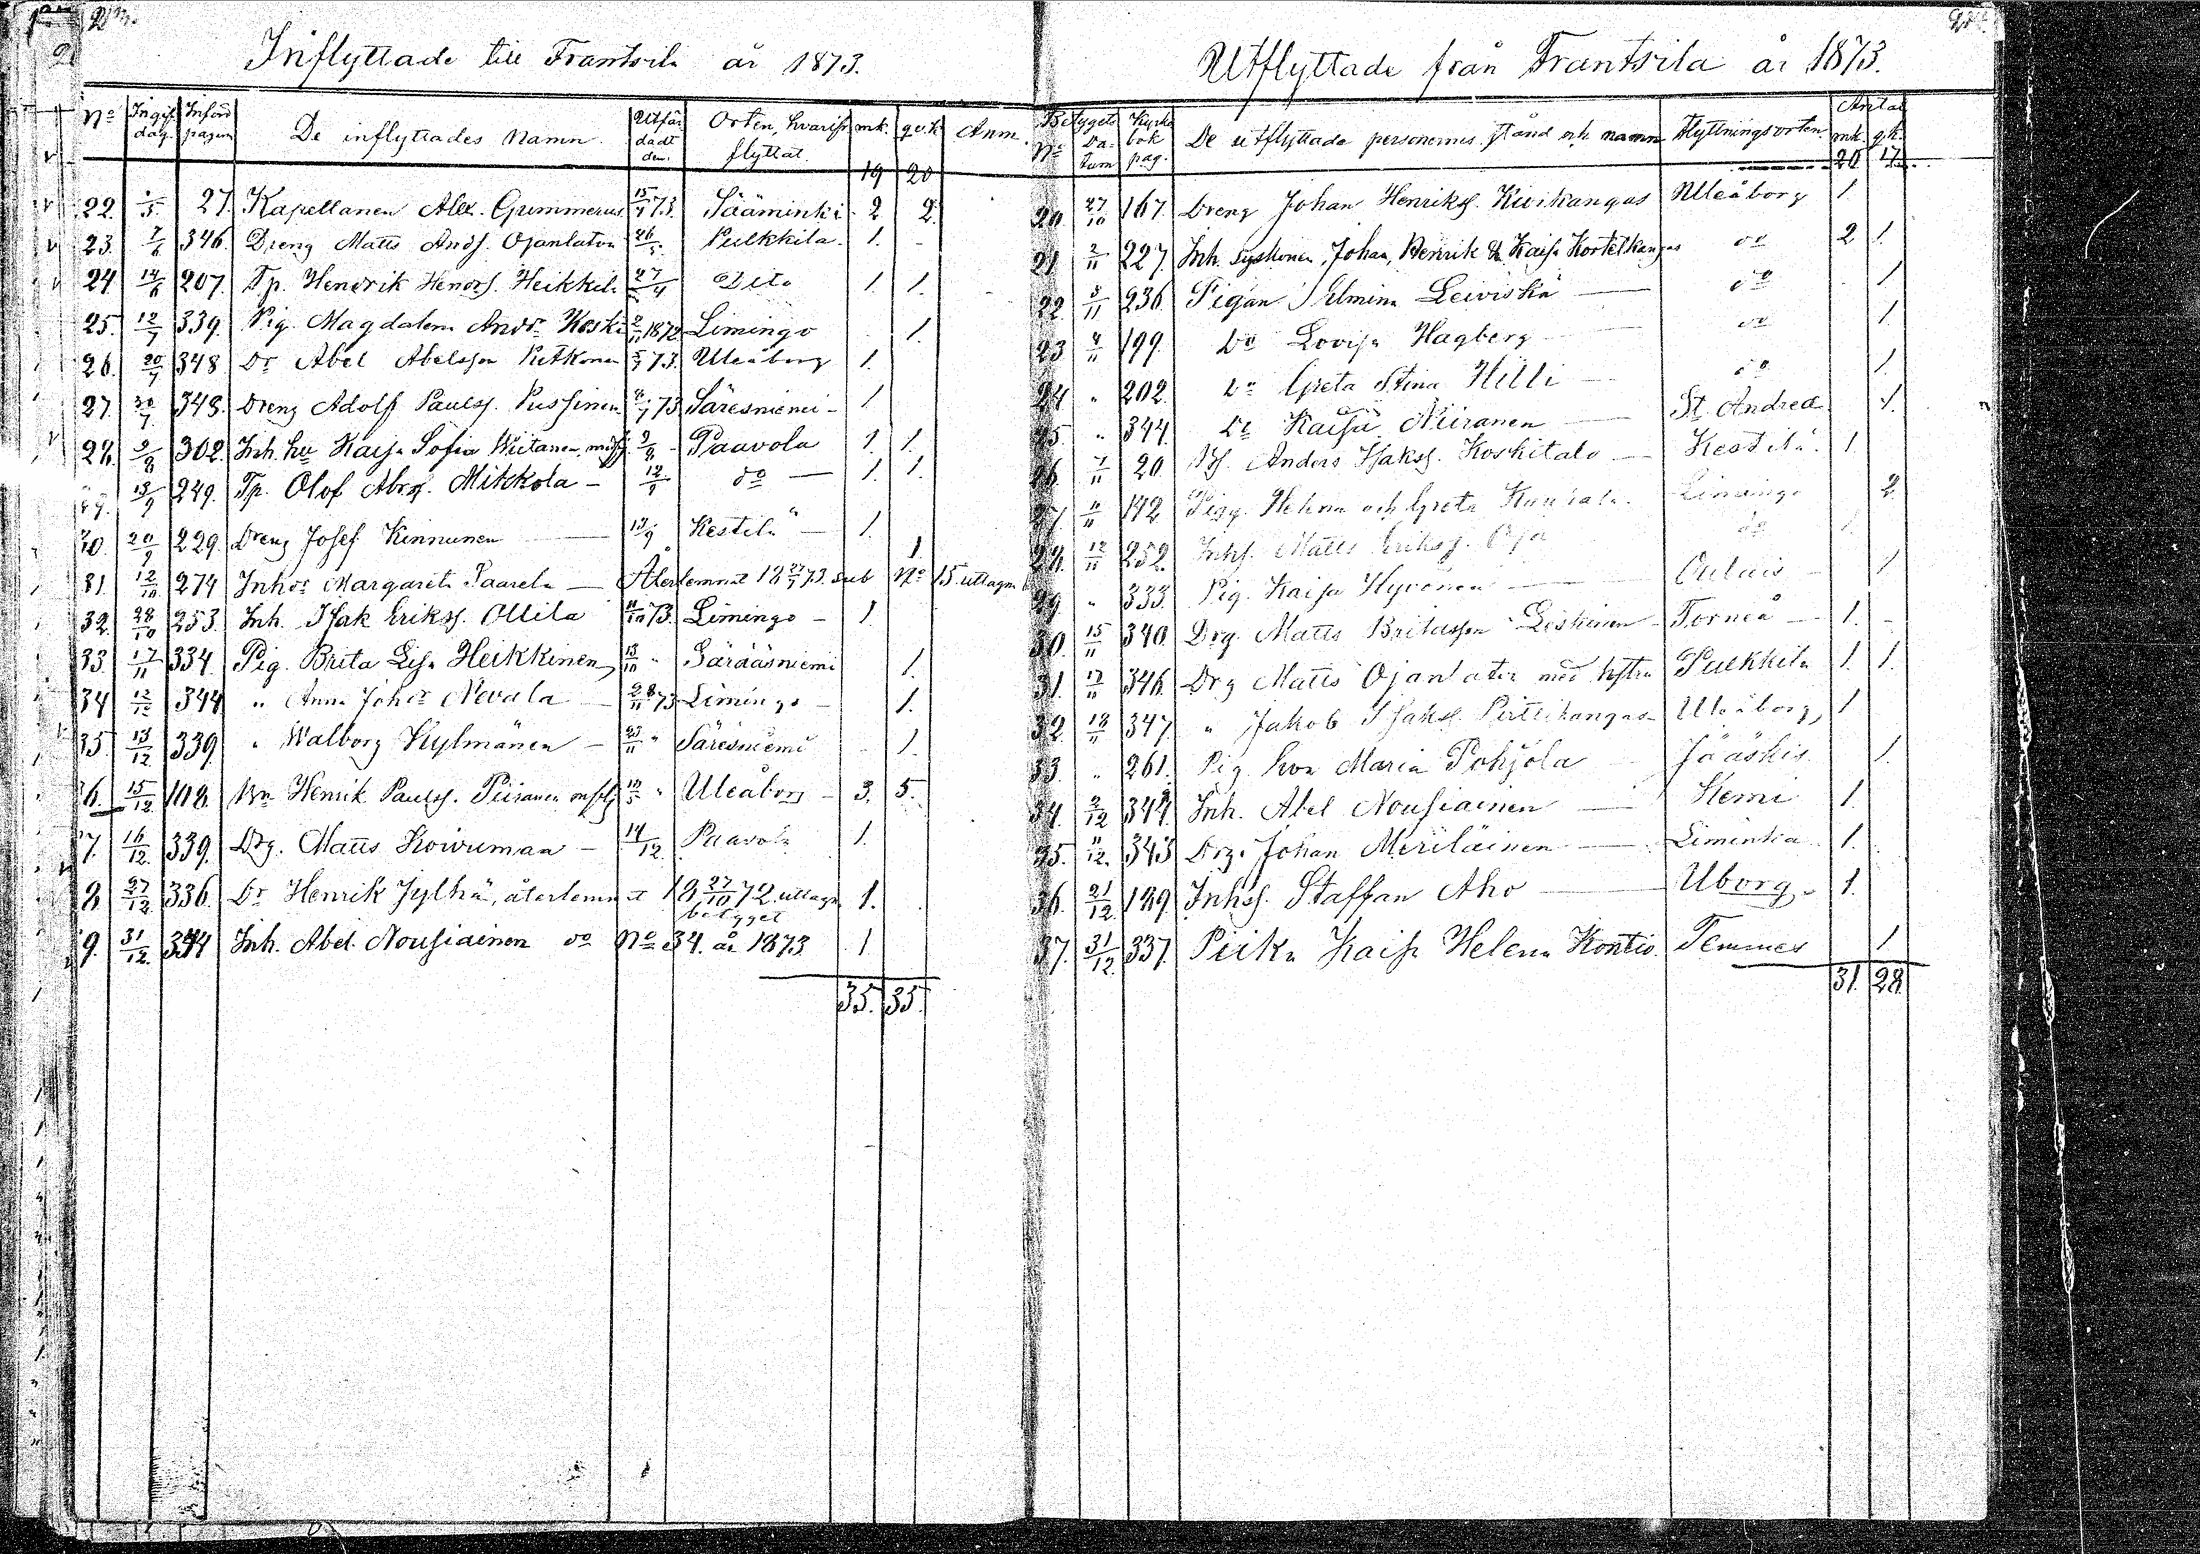 Inflyttade till Frantsila år 1873.
No Ingif. dag. Införd pagina De inflyttades Namn. Utfärdadt den. Orten, hvarifr. flyttat. mk. qv.k. Anm.
19 20
22. /5. 27. Kapellanen Alex. Gummerus 15/4 73. Sääminki 2 2.
23. 7/6 346. Dreng Matts Ands. Ojanlatva 26/5. Pulkkila. 1. -
24 14/6 207. Tp. Hendrik Hendrs. Heikkilä 27/4 Dito 1. 1.
25. 12/7 339. Pig. Magdalena Andrsdr Koski 2/11 1872 Limingo 1.
26. 20/7 348 Dr Abel Abelsson Pietkonen 73. Uleåborg 1.
27. 30/7 348. Dreng Adolf Paulss. Pussinen /7 73 Säresniemi - 1.
28. 2/8 302. Inh. hu Kajsa Sofia Wiitanen 2/8 - Paavola 1. 1.
29. 13/9 249. Tp. Olof Abrs. Mikkola - 12/9 do — 1. 1.
30. 20/9 229. Dreng Josef Kinnunen 13/9 Kestilä — 1.
31 12/10 274 Inhdr Margareta Paarela — Återlemnat 18 27/7 73. sub No 15. uttagna 1.
32. 28/10 253. Inh. Isak Erikss. Ollila 11/10 73. Limingo - 1.
33. 17/11 334. Pig. Brita Lisa Heikkinen 13/10 " Säräisniemi 1.
34 12/12 344 " Anna Johsdr Nevala 28/11 73 Limingo - 1.
35. 13/12 339. " Walborg Kylmänen - 23/11 " Säresniemi 1.
36. 15/12 108. Bn Henrik Paulss. Piiranen 12/5 " Uleåborg - 3. 5.
37. 16/12 339. Drg. Matts Koivuman - 14/12 Paavola 1.
38 27/12 336. Dr Henrik Jylhä, återlemnat 18 27/10 72. uttagn. betyget 1.
39. 31/12. 344 Inh. Abel Nousiainen do No 34. år 1873 1.
35. 35.
Utflyttade från Frantsila år 1873.
Betygets No Datum Kyrkobok pag. De utflyttade personernes stånd och namn Flyttningsorten. Antal mk. qk.
20 17
20 27/10 167. Dreng Johan Henrikss. Kivikangas Uleåborg 1.
21 2/11 227. Inh. syskonen Johan, Henrik & Kaisa Kortetkangas do 2 1.
22 3/11 236 Pigan Selmina Leiviskä — do 1
23 4/11 199. Do Lovisa Hagberg do 1
24 " 202. Do Greta Stina Hilli — do 1
25. " 344 Do Kaisa Niiranen St. Andreæ 1.
26. 7/11 20 Anders Isakss. Koskitalo — Kestilä 1.
27. 11/11 192 Pigg. Helena och Greta Limingo 2.
28. 12/11 252. Inhs. Matts Erikss. Oja do 1.
29 " 333. Pig. Kaisa Hyvönen Oulais 1
30. 15/11 340. Drg. Matts Britasson Leskinen - Torneå — 1. -
31. 17/11 346. Drg Matts Ojanlatva med hustru Pulkkila 1. 1.
32. 18/11 347. " Jakob Isakss. Pirttikangas - Uleåborg, 1
33. " 261. Pig. Eva Maria Pohjola — Jääskis. 1.
34. 2/12 344 Inh. Abel Nousiainen — Kemi 1.
35. 11/12. 343 Drg. Johan Meriläinen — Liminka 1.
36. 21/12 189 Inhs. Staffan Aho — Uborg. 1.
37. 31/12. 337. Piika Kaisa Helena Kontio. Temmes 1
31. 28.